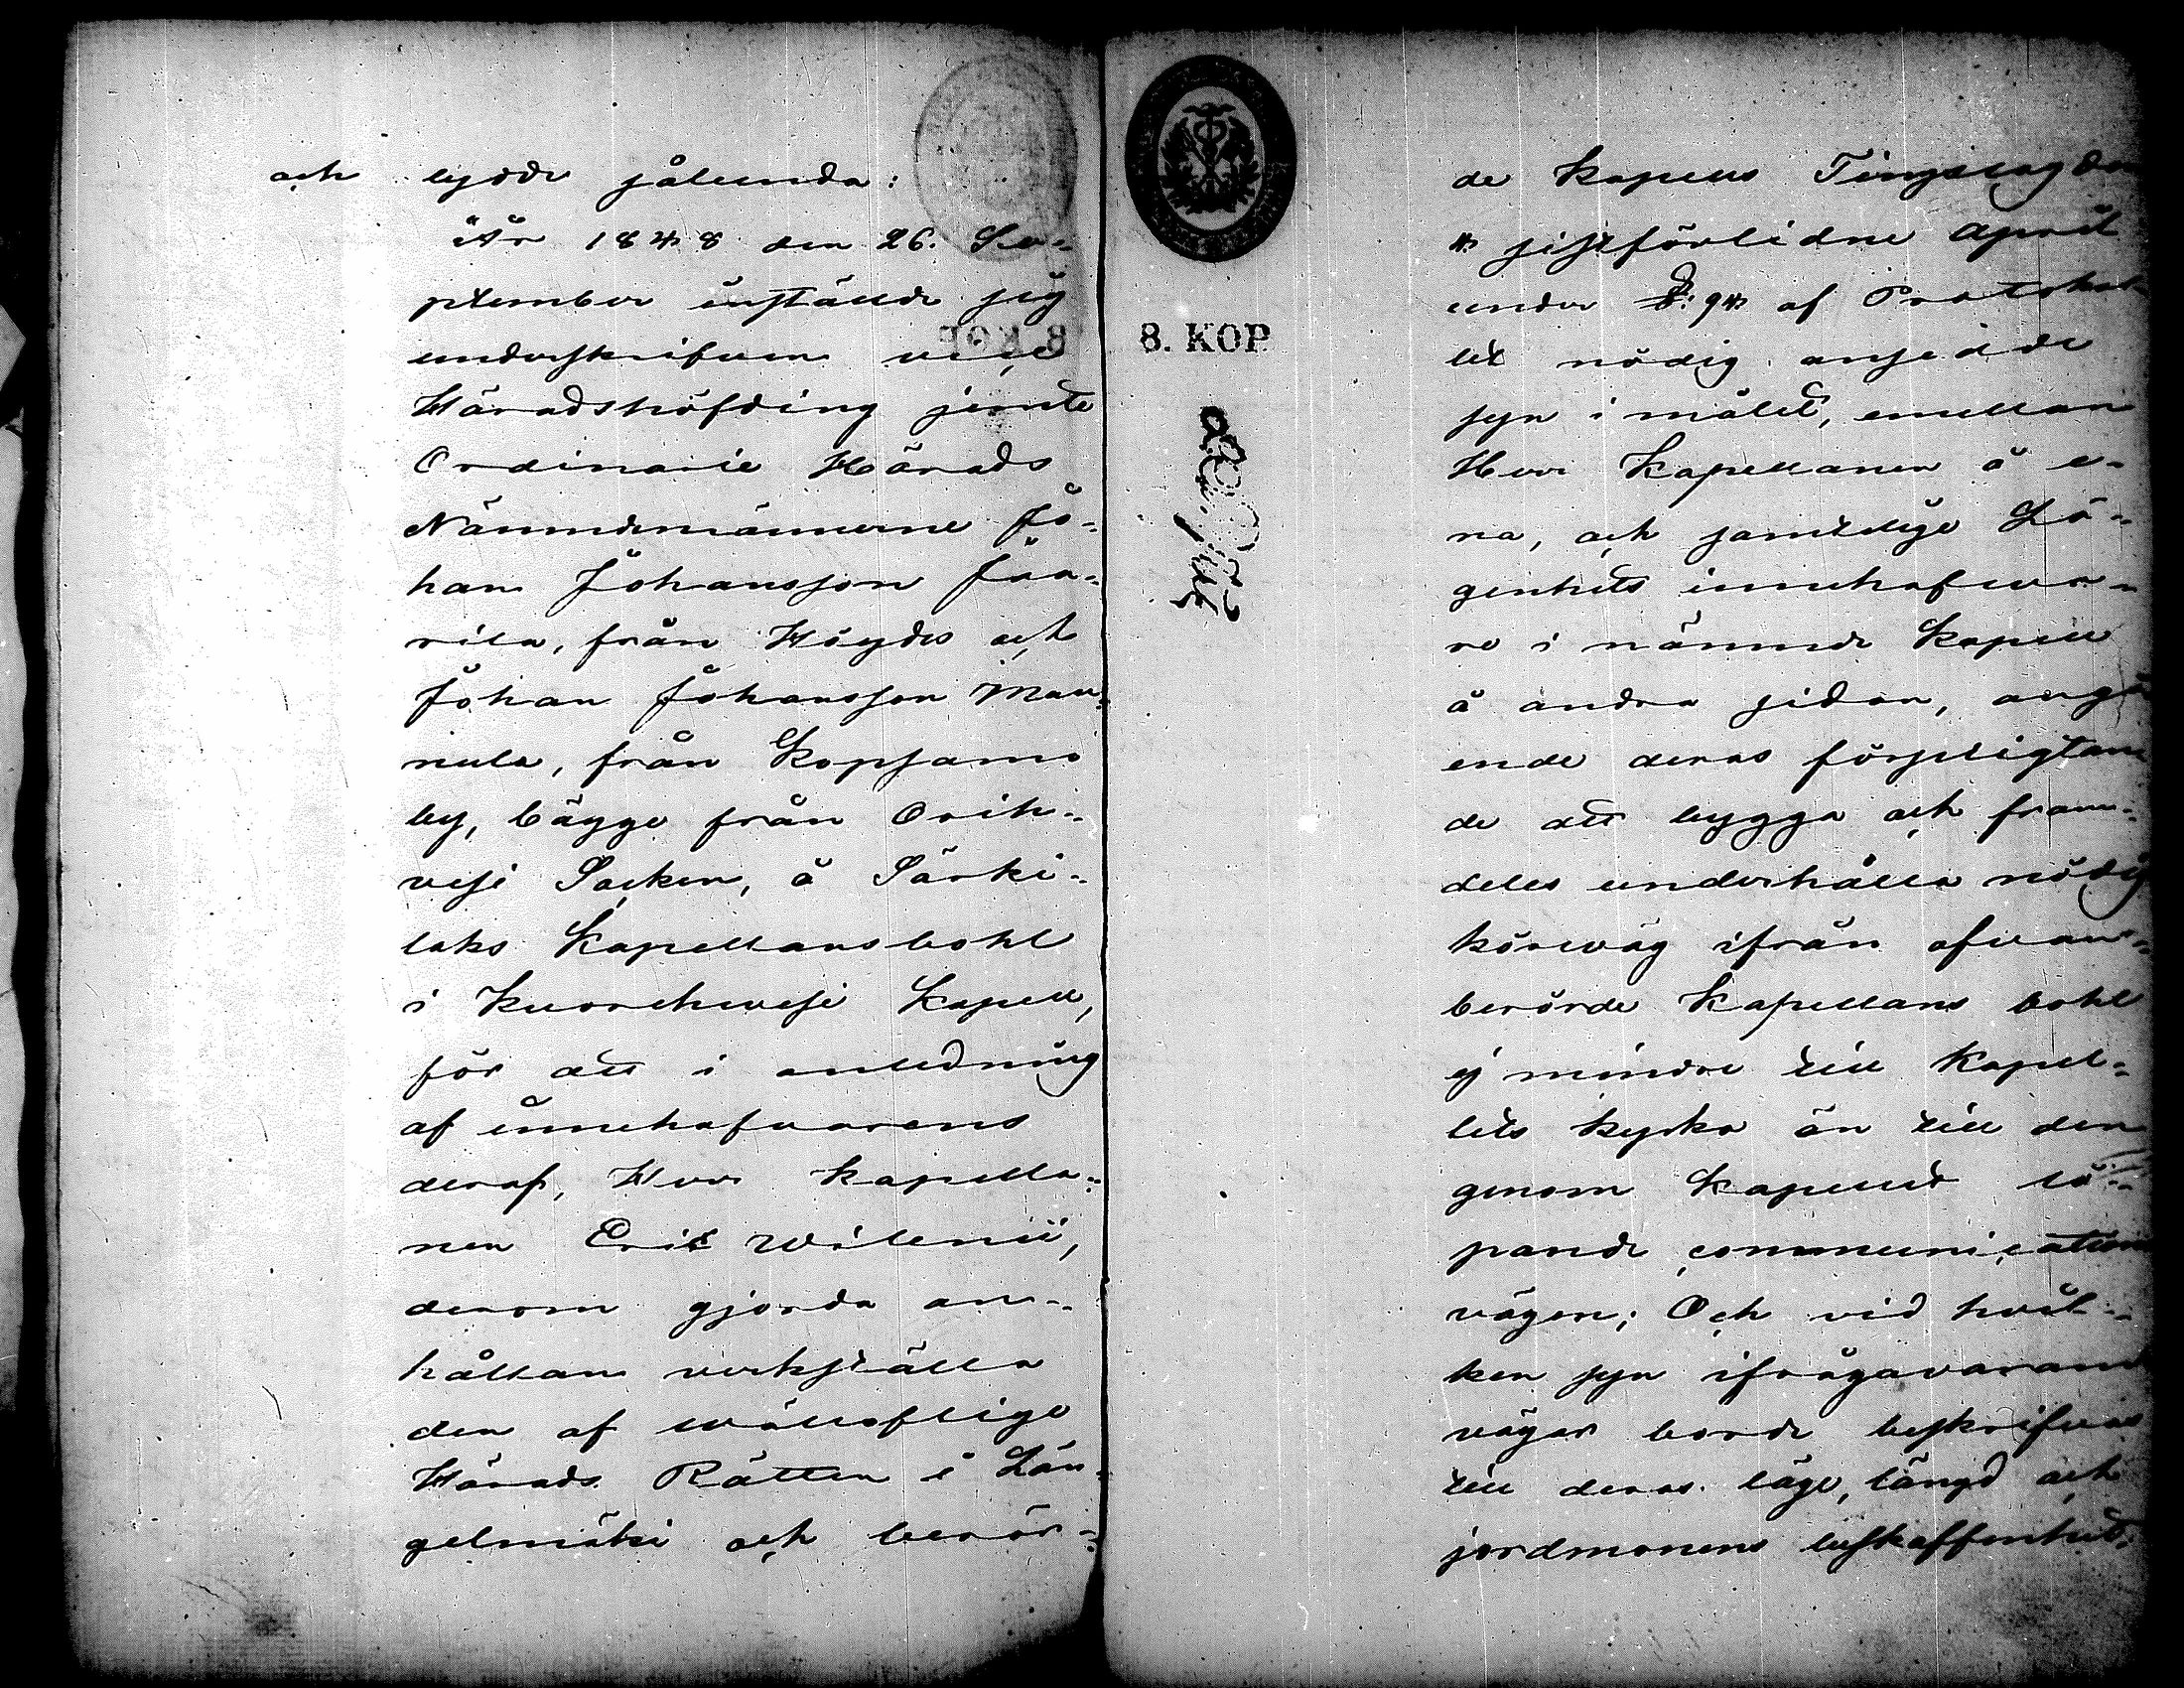 och lydde sålunda:
År 1848 den 26. Se-
ptember inställde sig
underskrifven vice
Häradshöfding jemte
Ordinarie Härads
Nämndemännerne Jo-
han Johansson Jaa-
rila, från Höydes och
Johan Johansson Man-
nula, från Kopsamo
by, bägge från Orih-
vesi Socken, å Särki-
laks Kapellansbohl
i Kuorehwesi Kapell,
för att i anledning
af innehafvarens
deraf, Herr Kapella-
nen Eric Wilenii,
derom gjorda an-
hållan verkställa
den af Wällofliga
Härads Rätten i Län-
gelmäki och berör-
8. KOP
de Kapells Tingslag den
4 sistförlidne April
under §: 94 af Protokol-
let nödig ansedde
syn i målet, emellan
Herr Kapellanen å e-
na, och samtelige Lä-
genhets innehafva-
re i nämnde Kapell
å andra sidan, angå
ende deras förpligtan
de att bygga och fram-
deles underhålla nödig
körwäg ifrån ofvan-
berörde Kapellans bohl
ej mindre till Kapel-
lets kyrka än till den
genom Kapellet lö-
pande communication
vägen; Och vid hvil-
ken syn ifrågavarand
vägar borde beskrifvas
till deras läge, längd och
jordmonens beskaffenhet.